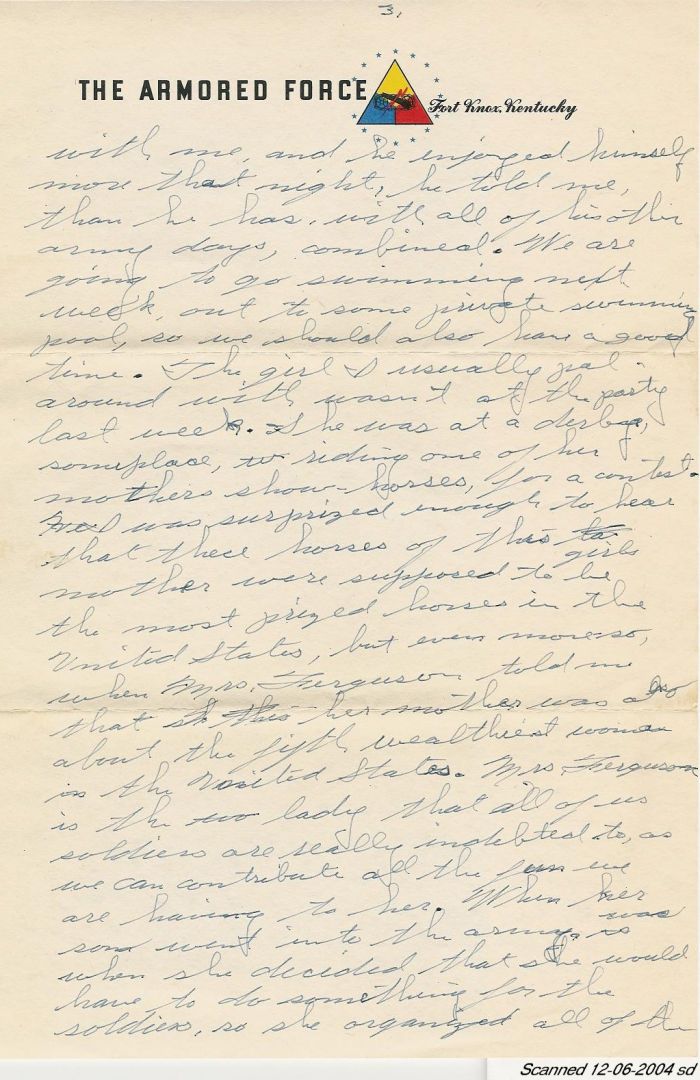 3.
THE ARMORED FORCE
Fort Knox, Kentucky
with me, and he enjoyed himself
more that night, he told me,
than he has, with all of his other
army days, combined. We are
going to go swimming next
week, out to some private swimming
pool, so we should also have a good
time. The girl I usually pal-
around with wasn't at the party
last week. She was at a derby,
someplace, riding one of her
mothers show-horses, for a contest.
I was surprized enough to hear
that these horses of this girls
mother were supposed to be
the most prized horses in the
United States, but even moreso,
when Mrs. Ferguson told me
that her mother was also
about the fifth wealthiest woman
in the United States. Mrs. Ferguson
is the lady that all of us
soldiers are really indebted to, as
we can contribute all the fun we
are having to her. When her
son went into the army, was
when she decided that she would
have to do something for the
soldiers, so she organized all of the
Scanned 12-06-2004 sd